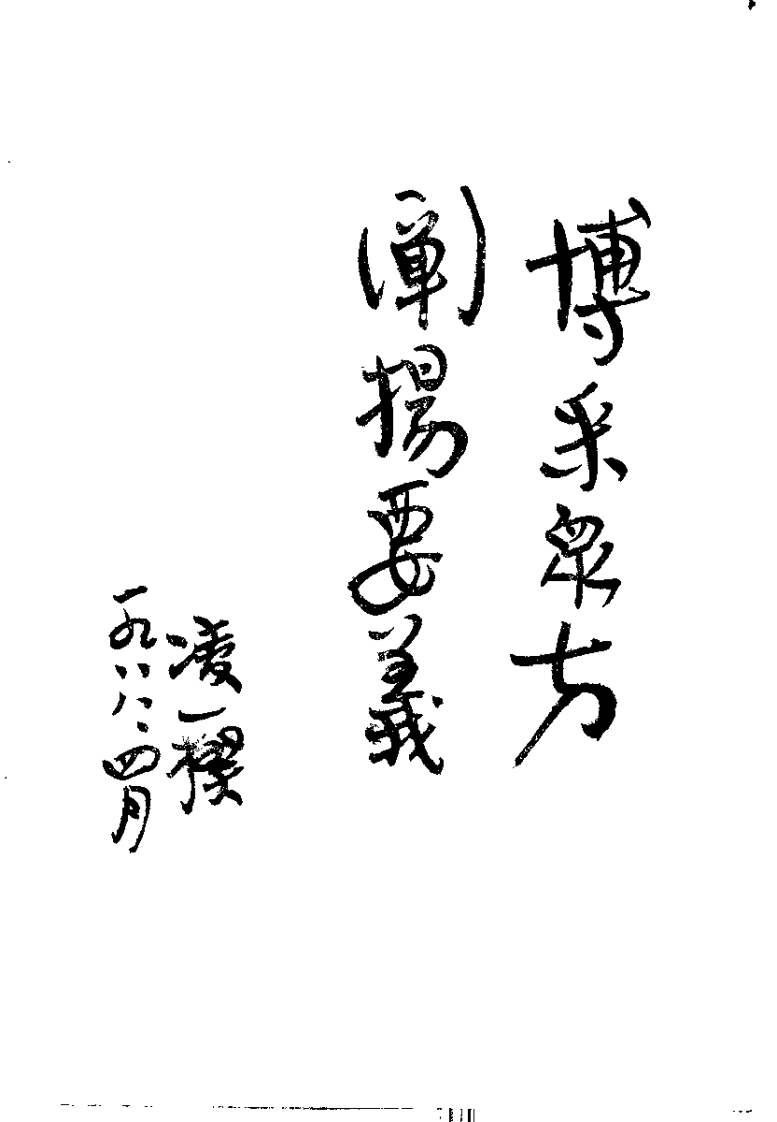 博采眾方
闡揚要義
凌一揆
一九八八、四月